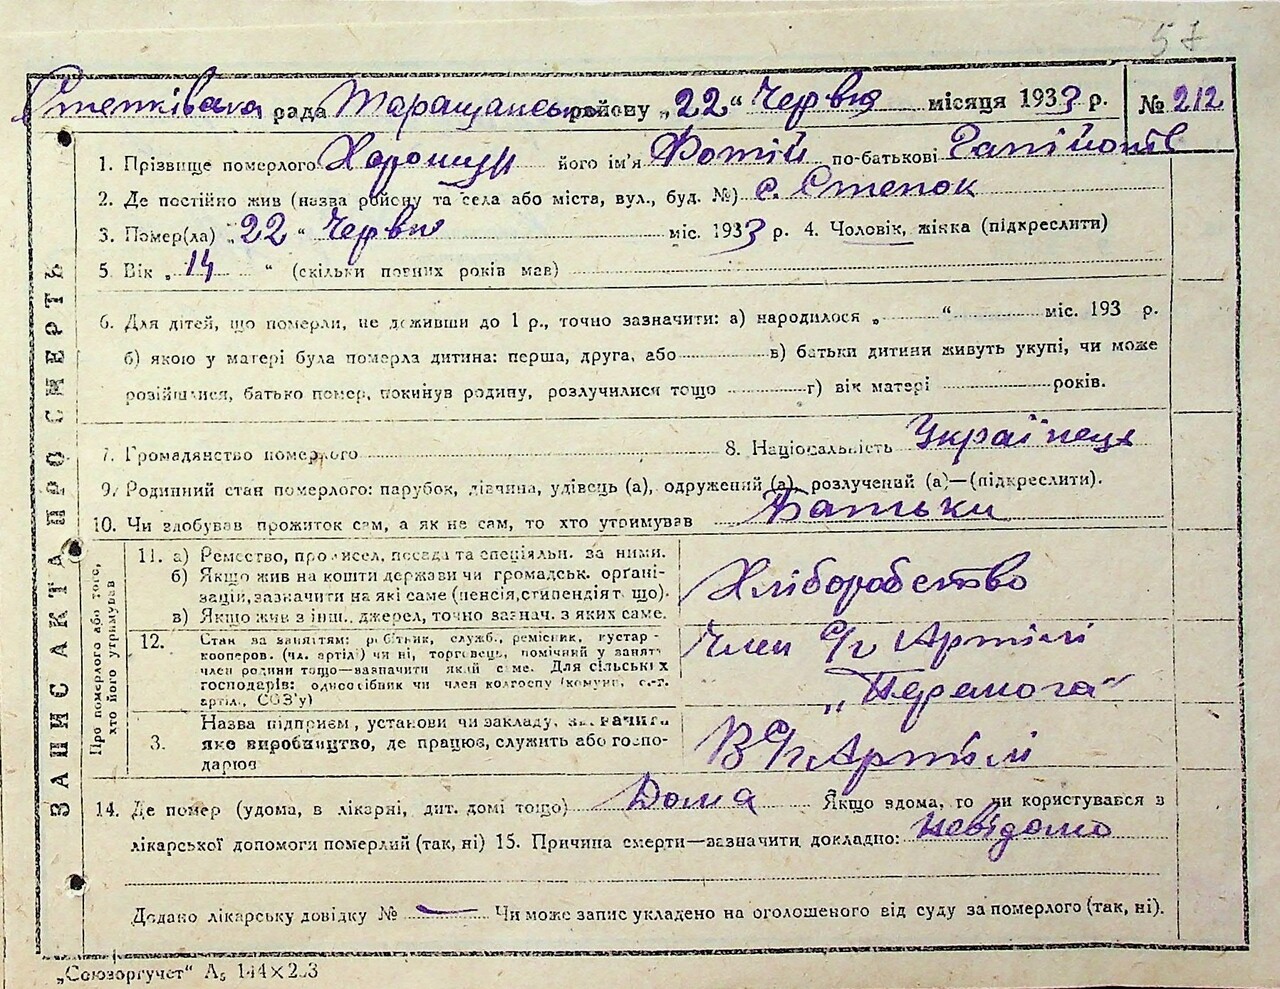 57
Степківска рада Таращанського району „22“ Червня місяця 1933 р. № 212
1. Прізвище померлого його ім'я Фотій по-батькові
2. Де постійно жив (назва району та села або міста, вул., буд. №) с. Степок
3. Помер(ла) „22“ Червня міс. 1933 р. 4. Чоловік, жінка (підкреслити)
5. Вік „14“ (скільки повних років мав)
6. Для дітей, що померли, не доживши до 1 р., точно зазначити: а) народилося „ “ міс. 193 р.
б) якою у матері була померла дитина: перша, друга, або в) батьки дитини живуть укупі, чи може
розійшлися, батько помер, покинув родину, розлучилися тощо г) вік матері років.
7. Громадянство померлого 8. Національність Українець
9. Родинний стан померлого: парубок, дівчина, удівець (а), одружений (а), розлучений (а)—(підкреслити).
10. Чи здобував прожиток сам, а як не сам, то хто утримував Батьки
ЗАПИС АКТА ПРО СМЕРТЬ
Про померлого або того,
хто його утримував
11. а) Ремество, промисел, посада та спеціяльн. за ними.
б) Якщо жив на кошти держави чи громадськ. орґані-
зацій, зазначити на які саме (пенсія, стипендіят що).
в) Якщо жив з інш. джерел, точно зазнач. з яких саме.
Хліборобство
12. Стан за заняттям: робітник, служб., ремісник, кустар-
кооперов. (чл. артілі) чи ні, торговець, помічний у занят
член родини тощо—зазначити який саме. Для сільських
господарів: одноосібник чи член колгоспу (комуни, с.-г.
артіл., СОЗ'у)
Член С/г Артілі
„Перемога“
3. Назва підприєм., установи чи закладу, зазначити
яке виробництво, де працює, служить або госпо-
дарює
В С/г Артілі
14. Де помер (удома, в лікарні, дит. домі тощо) Дома Якщо вдома, то чи користувався з
лікарської допомоги померлий (так, ні) 15. Причина смерти—зазначити докладно: невідомо
Додано лікарську довідку № — Чи може запис укладено на оголошеного від суду за померлого (так, ні).
„Союзоргучет“ А₅ 144×203